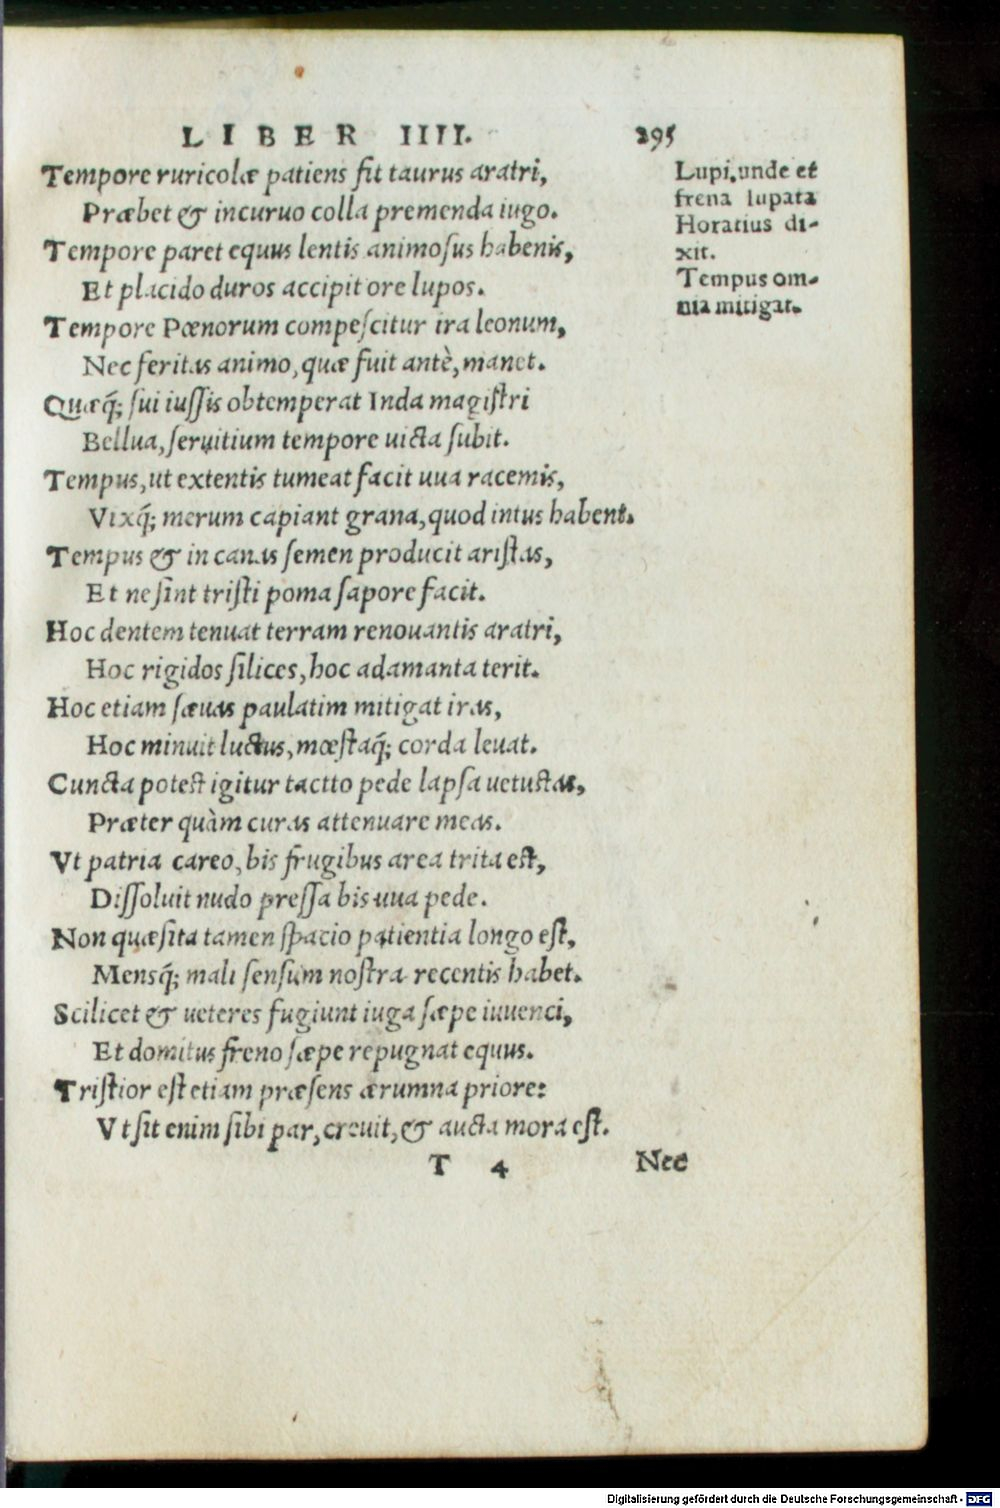 LIBER IIII. 295
Tempore ruricolæ patiens fit taurus aratri,
Præbet & incuruo colla premenda iugo.
Tempore paret equus lentis animosus habenis,
Et placido duros accipit ore lupos.
Tempore Pœnorum compescitur ira leonum,
Nec feritas animo, quæ fuit antè, manet.
Quæq́; sui iussis obtemperat Inda magistri
Bellua, seruitium tempore uicta subit.
Tempus, ut extentis tumeat facit uua racemis,
Vixq́; merum capiant grana, quod intus habent.
Tempus & in canas semen producit aristas,
Et ne sint tristi poma sapore facit.
Hoc dentem tenuat terram renouantis aratri,
Hoc rigidos silices, hoc adamanta terit.
Hoc etiam sæuas paulatim mitigat iras,
Hoc minuit luctus, mœstaq́; corda leuat.
Cuncta potest igitur tactto pede lapsa uetustas,
Præter quàm curas attenuare meas.
Vt patria careo, bis frugibus area trita est,
Dissoluit nudo pressa bis uua pede.
Non quæsita tamen spacio patientia longo est,
Mensq́; mali sensum nostra recentis habet.
Scilicet & ueteres fugiunt iuga sæpe iuuenci,
Et domitus freno sæpe repugnat equus.
Tristior est etiam præsens ærumna priore:
Vt sit enim sibi par, creuit, & aucta mora est.
T 4 Nec
Lupi, unde et
frena lupata
Horatius di-
xit.
Tempus om-
nia mitigat.
Digitalisierung gefördert durch die Deutsche Forschungsgemeinschaft - DFG